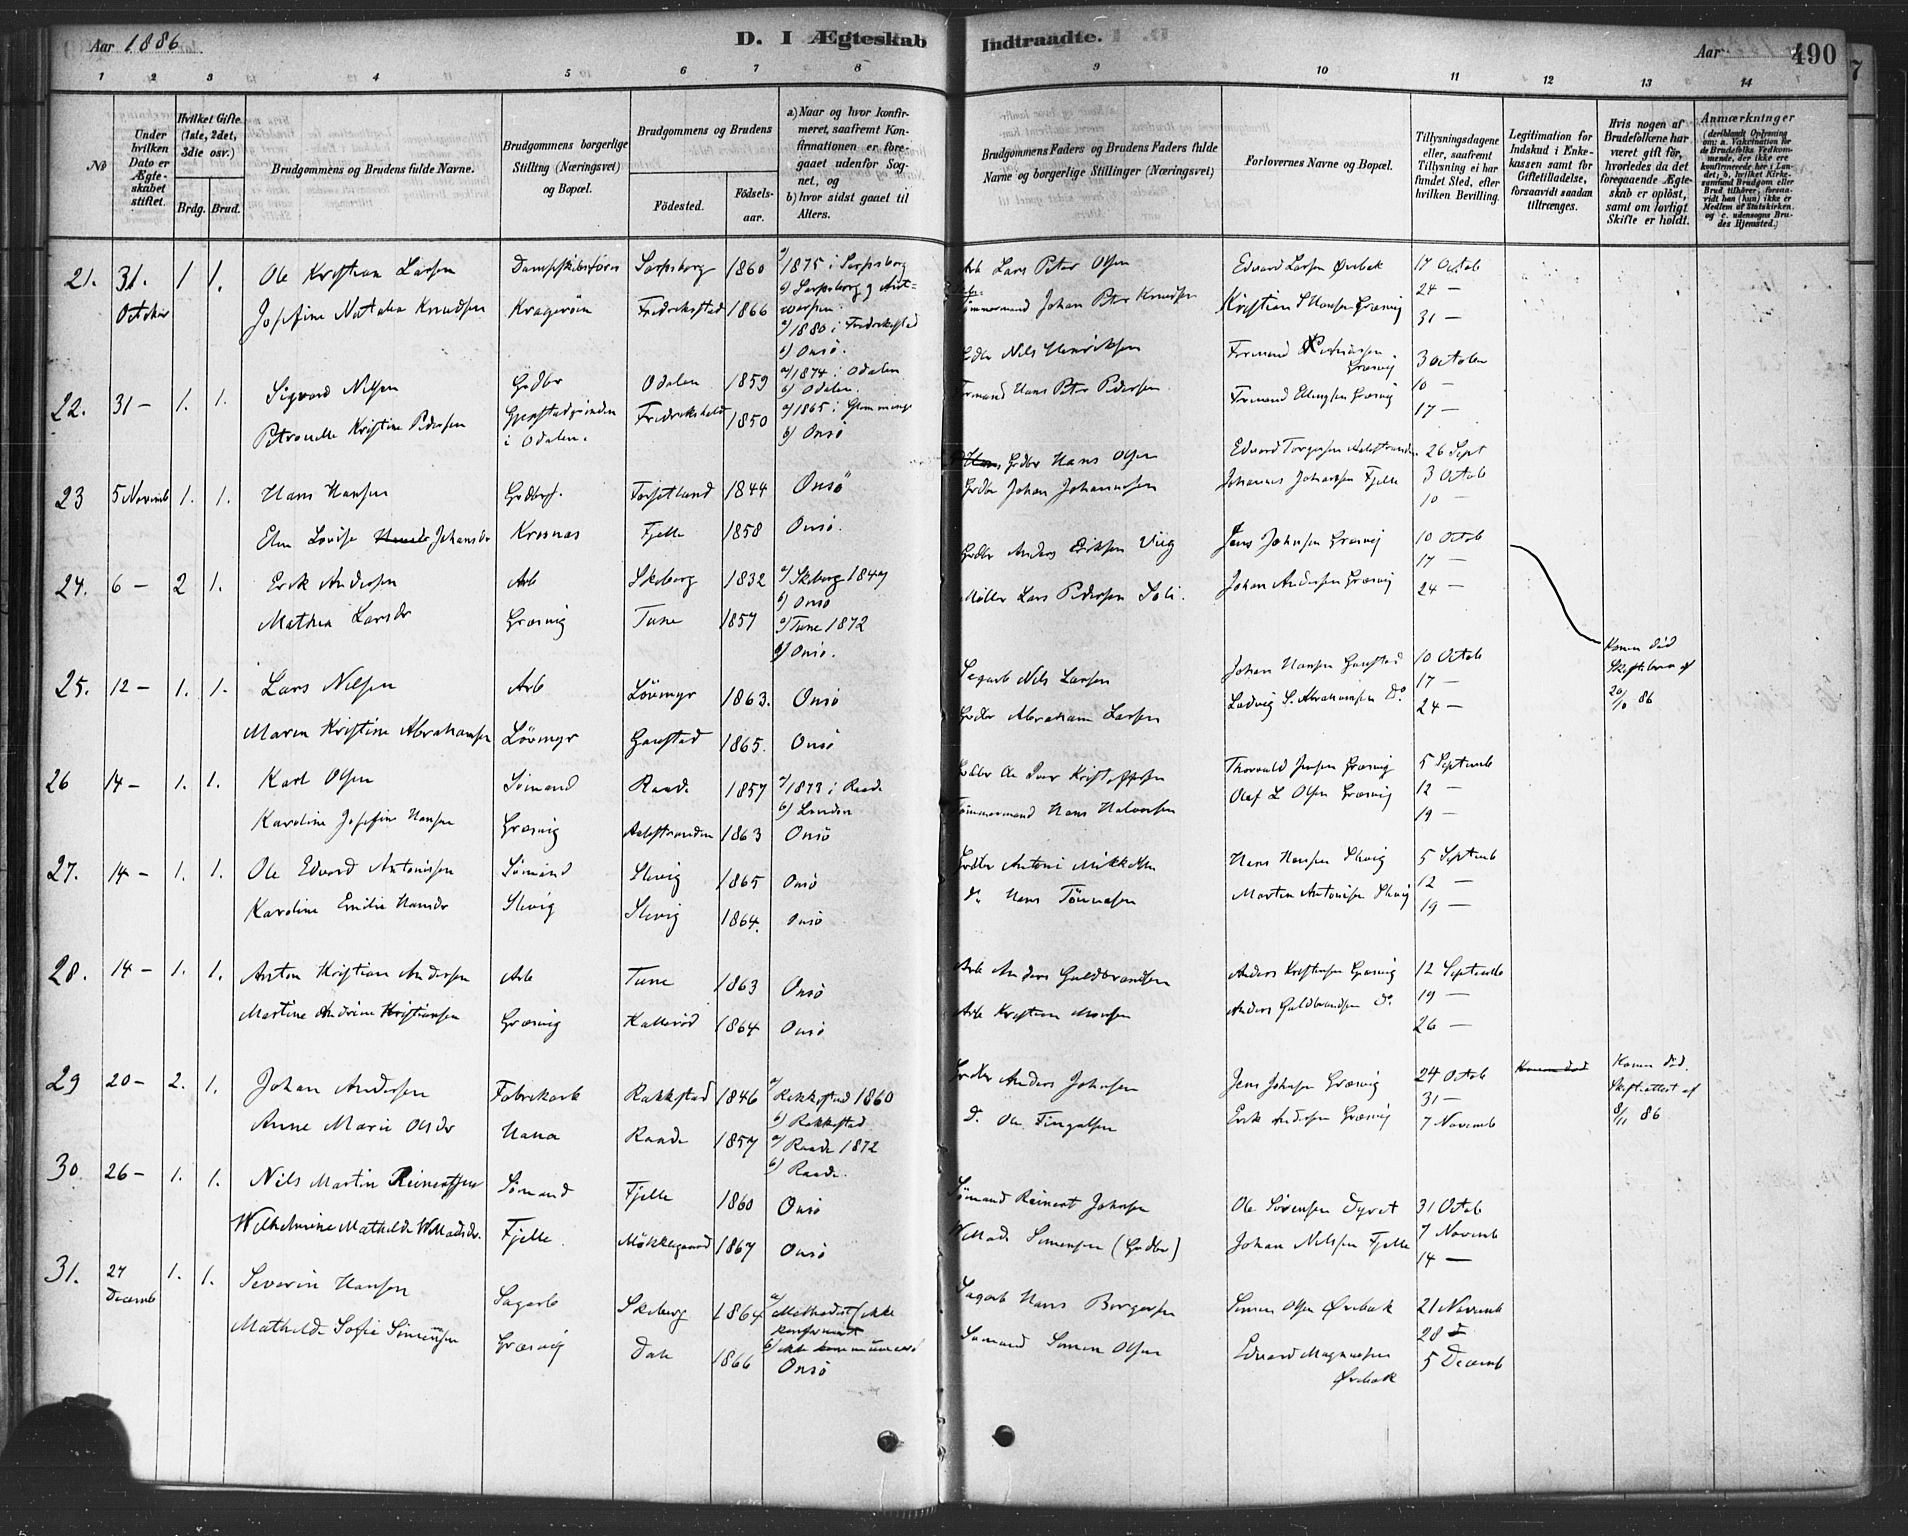 Aar 1886
D. I Ægteskab Indtraadte.
Aar 490
1 2 3 4 5 6 7 8 9 10 11 12 13 14
No
Under hvilken Dato er Ægteskabet stiftet.
Hvilket Gifte (1ste, 2det, 3die osv.)
Brdg. Brud.
Brudgommens og Brudens fulde Navne.
Brudgommens borgerlige Stilling (Næringsvei) og Bopæl.
Brudgommens og Brudens
Fødested. Fødselsaar.
a) Naar og hvor konfirmeret, saafremt Konfirmationen er foregaaet udenfor Sognet, og
b) hvor sidst gaaet til Alters.
Brudgommens Faders og Brudens Faders fulde Navne og borgerlige Stillinger (Næringsvei)
Forlovernes Navne og Bopæl.
Tillysningsdagene eller, saafremt Tillysning ei har fundet Sted, efter hvilken Bevilling.
Legitimation for Indskud i Enkekassen samt for Giftetilladelse, forsaavidt saadan tiltrænges.
Hvis nogen af Brudefolkene har været gift før, hvorledes da det foregaaende Ægteskab er opløst, samt om lovligt Skifte er holdt.
Anmærkninger
(deriblandt Oplysning om: a. Vaccination for de Brudefolks Vedkommende, der ikke ere konfirmerede her i Landet; b. hvilket Kirkesamfund Brudgom eller Brud tilhører, forsaavidt han (hun) ikke er Medlem af Statskirken, og c. udensogns Brudes Hjemsted.)
21. 31. October 1 1. Ole Kristian Larsen Sarpsborg 1860 a) 1875 i Sarpsborg Arb Lars Peter Olsen Edvard Larsen Ørebak 17 Octob
Josefine Natalia Knudsen Kragerøen Fredrikstad 1866 a) 1880 i Fredrikstad b) Onsö. Tömmermand Johan Peter Knudsen Kristian Hansen Græsvig 24 —
31 —
22. 31 — 1. 1. Sigvard Nilsen Grdbr Odalen 1859 a) 1874 i Odalen b) Odalen. Grdbr Nils Henriksen Formand Græsvig 3 October
Petronelle Kristine Pedersen i Odalen. Fredrikshald 1850 a) 1865 i Glemminge b) Onsö Formand Hans Peter Pedersen Formand Græsvig 10 —
17 —
23 5 Novemb 1. 1. Hans Hansen Grdbr Torsetland 1844 Onsö Grdbr Hans Olsen Edvard Torgersen 26 Sept
Johansdr Krosnæs Fjelle 1858 Onsö. Grdbr Johan Johannesen Johannes Johansen Fjelle 3 Octob
10 —
24. 6 — 2 1. Erik Andersen Arb Skeberg 1832 a) Skeberg 1847 b) Onsö Grdbr Anders Eriksen Viig Jens Johnsen Græsvig 10 Octob
Mathea Larsdr Græsvig Tune 1857 a) Tune 1872 b) Onsö. Möller Lars Pedersen Soli. Johan Andersen Græsvig 17 —
24 —
Konen död
20/10 86
25. 12 — 1. 1. Lars Nilsen Arb Lövmyr 1863. Onsö Sagarb Nils Larsen Johan Hansen 10 Octob
Maren Kristine Abrahamsen Lövmyr 1865. Onsö Grdbr Abraham Larsen Ludvig S. Abrahamsen Do. 17 —
24 —
26 14 — 1. 1. Karl Olsen Sömand Raade 1857 a) 1873 i Raade b) London Grdbr Ole Kristoffersen Thorvald Jensen Græsvig 5 Septemb
Karoline Josefine Hansen Græsvig Aalestranden 1863 Onsö Tömmermand Hans Halvorsen Olaf L Olsen Græsvig 12 —
19 —
27. 14 — 1. 1. Ole Edvard Antonisen Sömand Slevig 1865 Onsö Grdbr Antoni Mikkelsen Hans Hansen Slevig 5 Septemb
Karoline Emilie Hansdr Slevig Slevig 1864. Onsö do Hans Tönnesen Martin Antonisen Slevig 12 —
19 —
28. 14 — 1. 1. Anton Kristian Andersen Arb Tune 1863 Onsö Arb Anders Guldbrandsen Anders Kristensen Græsvig 12 Septemb
Martine Andrine Kristiansen Græsvig Kallerød 1864 Onsö Arb Kristian Monsen Anders Guldbrandsen Do 19 —
26 —
29 20 — 2. 1. Johan Andersen Fabrikarb Rakkestad 1846 a) Rakkestad 1860 b) Rakkestad Grdbr Anders Johnsen Jens Johnsen Græsvig 24 Octob Konen död Konen död.
Anne Marie Olsdr Raade 1857 a) Raade 1872 b) Raade. Do Ole Fingalsen Erik Andersen Græsvig 31 — Skifteattest af
7 Novemb 8/11 86
30. 26 — 1. 1. Nils Martin Reinertsen Sömand Fjelle 1860 Onsö Sömand Reinert Johnsen Ole Sörensen Dyret 31 Octob
Wilhelmine Mathilde W. Madsdr. Fjelle Mökkegaard 1867 Onsö W Mads Simensen (Grdbr) Johan Nilsen Fjelle 7 Novemb
14 —
31. 27 Decemb 1. 1. Severin Hansen Sagarb Skeberg 1864 a) Methodist, ikke konfirmert Sagarb Hans Borgersen Simen Olsen Ørebak 21 Novemb
b) ikke
Mathilde Sofie Simensen Græsvig Dale 1866 Onsö Sömand Simen Olsen Edvard Magnussen Ørebak 28 d
5 Decemb